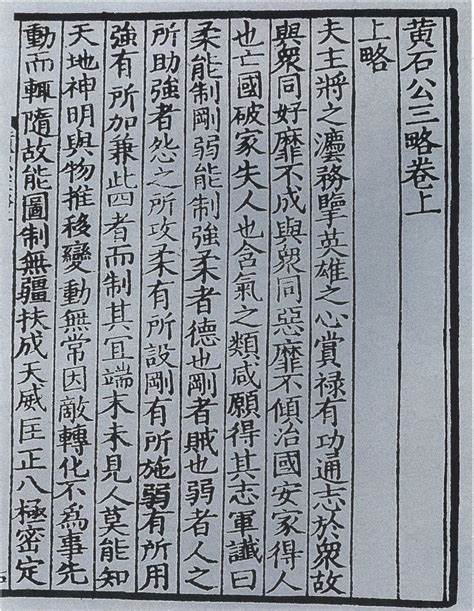 黃石公三略卷上
上略
夫主將之灋務擥英雄之心賞祿有功通志於衆故
與衆同好靡不成與衆同惡靡不傾治國安家得人
也亡國破家失人也含氣之類咸願得其志軍讖曰
柔能制剛弱能制強柔者德也剛者賊也弱者人之
所助強者怨之所攻柔有所設剛有所施弱有所用
強有所加兼此四者而制其宜端末未見人莫能知
天地神明與物推移變動無常因敵轉化不爲事先
動而輒隨故能圖制無疆扶成天威匡正八極密定